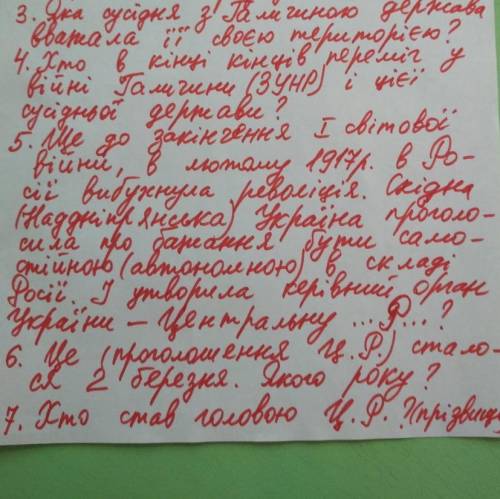 3. Яка сусідня з Галичиною держава
вважала її своєю територією?
4. Хто в кінці кінців переміг у
війні Галичини (ЗУНР) і цієї
сусідньої держави?
5. Ще до закінчення І світової
війни, в лютому 1917р. в Ро-
сії вибухнула революція. Східна
(Наддніпрянська) Україна проголо-
сила про бажання бути само-
стійною (автономною) в складі
Росії. І утворила керівний орган
України — Центральну ...Р...?
6. Це (проголошення Ц.Р.) стало-
ся 2 березня. Якого року?
7. Хто став головою Ц.Р.? (прізвище